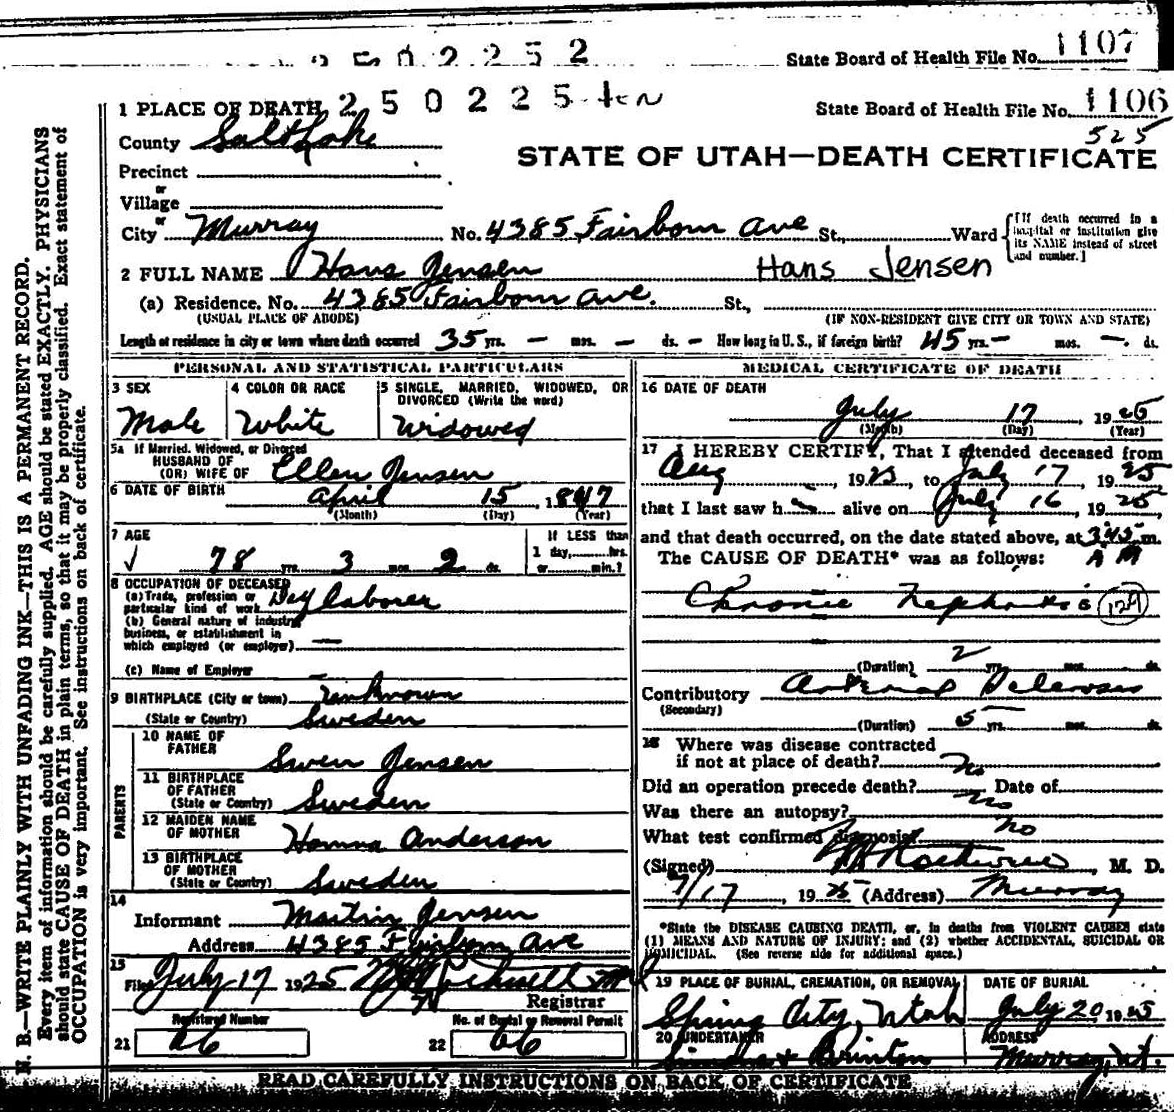 2502252
State Board of Health File No. 1107
1 PLACE OF DEATH 250225-ten
State Board of Health File No. 1106
County Salt Lake
525
STATE OF UTAH—DEATH CERTIFICATE
Precinct
or
Village
or
City Murray No. 4385 Fairbourn Ave St., Ward
{[If death occurred in a hospital or institution give its NAME instead of street and number.]
2 FULL NAME Hans Jensen Hans Jensen
(a) Residence. No. 4385 Fairbourn Ave. St.,
(USUAL PLACE OF ABODE) (IF NON-RESIDENT GIVE CITY OR TOWN AND STATE)
Length of residence in city or town where death occurred 35 yrs. — mos. — ds. — How long in U. S., if foreign birth? 45 yrs. — mos. — ds.
PERSONAL AND STATISTICAL PARTICULARS
3 SEX 4 COLOR OR RACE 5 SINGLE, MARRIED, WIDOWED, OR
DIVORCED (Write the word)
Male White Widowed
5a If Married, Widowed, or Divorced
HUSBAND OF
(OR) WIFE OF Ellen Jensen
6 DATE OF BIRTH April 15 1847
(Month) (Day) (Year)
7 AGE If LESS than
78 yrs. 3 mos. 2 ds. 1 day, hrs.
or min.?
8 OCCUPATION OF DECEASED
(a) Trade, profession or
particular kind of work Day laborer
(b) General nature of industry,
business, or establishment in
which employed (or employer) —
(c) Name of Employer
9 BIRTHPLACE (City or town) Unknown
(State or Country) Sweden
PARENTS
10 NAME OF
FATHER Swen Jensen
11 BIRTHPLACE
OF FATHER
(State or Country) Sweden
12 MAIDEN NAME
OF MOTHER Hanna Anderson
13 BIRTHPLACE
OF MOTHER
(State or Country) Sweden
14
Informant Martin Jensen
Address 4385 Fairbourn Ave
15
Filed July 17 1925
Registrar
Registered Number No. of Burial or Removal Permit
21 66 22 66
MEDICAL CERTIFICATE OF DEATH
16 DATE OF DEATH
July 17 1925
(Month) (Day) (Year)
17 I HEREBY CERTIFY, That I attended deceased from
Aug , 1923, to July 17 , 1925
that I last saw h alive on July 16 , 1925
and that death occurred, on the date stated above, at 3:45 m.
The CAUSE OF DEATH* was as follows: A M
Chronic Nephritis 129
(Duration) 2 yrs. mos. ds.
Contributory Arterial Sclerosis
(Secondary)
(Duration) 5 yrs. mos. ds.
18 Where was disease contracted
if not at place of death?
Did an operation precede death? No Date of
Was there an autopsy? No
What test confirmed diagnosis? No
(Signed) , M. D.
7/17 , 1925 (Address) Murray
*State the DISEASE CAUSING DEATH, or, in deaths from VIOLENT CAUSES state
(1) MEANS AND NATURE OF INJURY; and (2) whether ACCIDENTAL, SUICIDAL OR
HOMICIDAL. (See reverse side for additional space.)
19 PLACE OF BURIAL, CREMATION, OR REMOVAL DATE OF BURIAL
Spring City, Utah July 20, 1925
20 UNDERTAKER ADDRESS
Murray, Ut.
READ CAREFULLY INSTRUCTIONS ON BACK OF CERTIFICATE
N. B.—WRITE PLAINLY WITH UNFADING INK—THIS IS A PERMANENT RECORD.
Every item of information should be carefully supplied. AGE should be stated EXACTLY. PHYSICIANS
should state CAUSE OF DEATH in plain terms, so that it may be properly classified. Exact statement of
OCCUPATION is very important. See instructions on back of certificate.